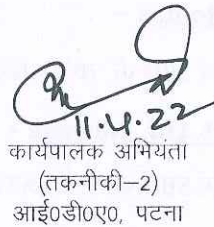 11.4.22
कार्यपालक अभियंता
(तकनीकी–2)
आई0डी0ए0, पटना